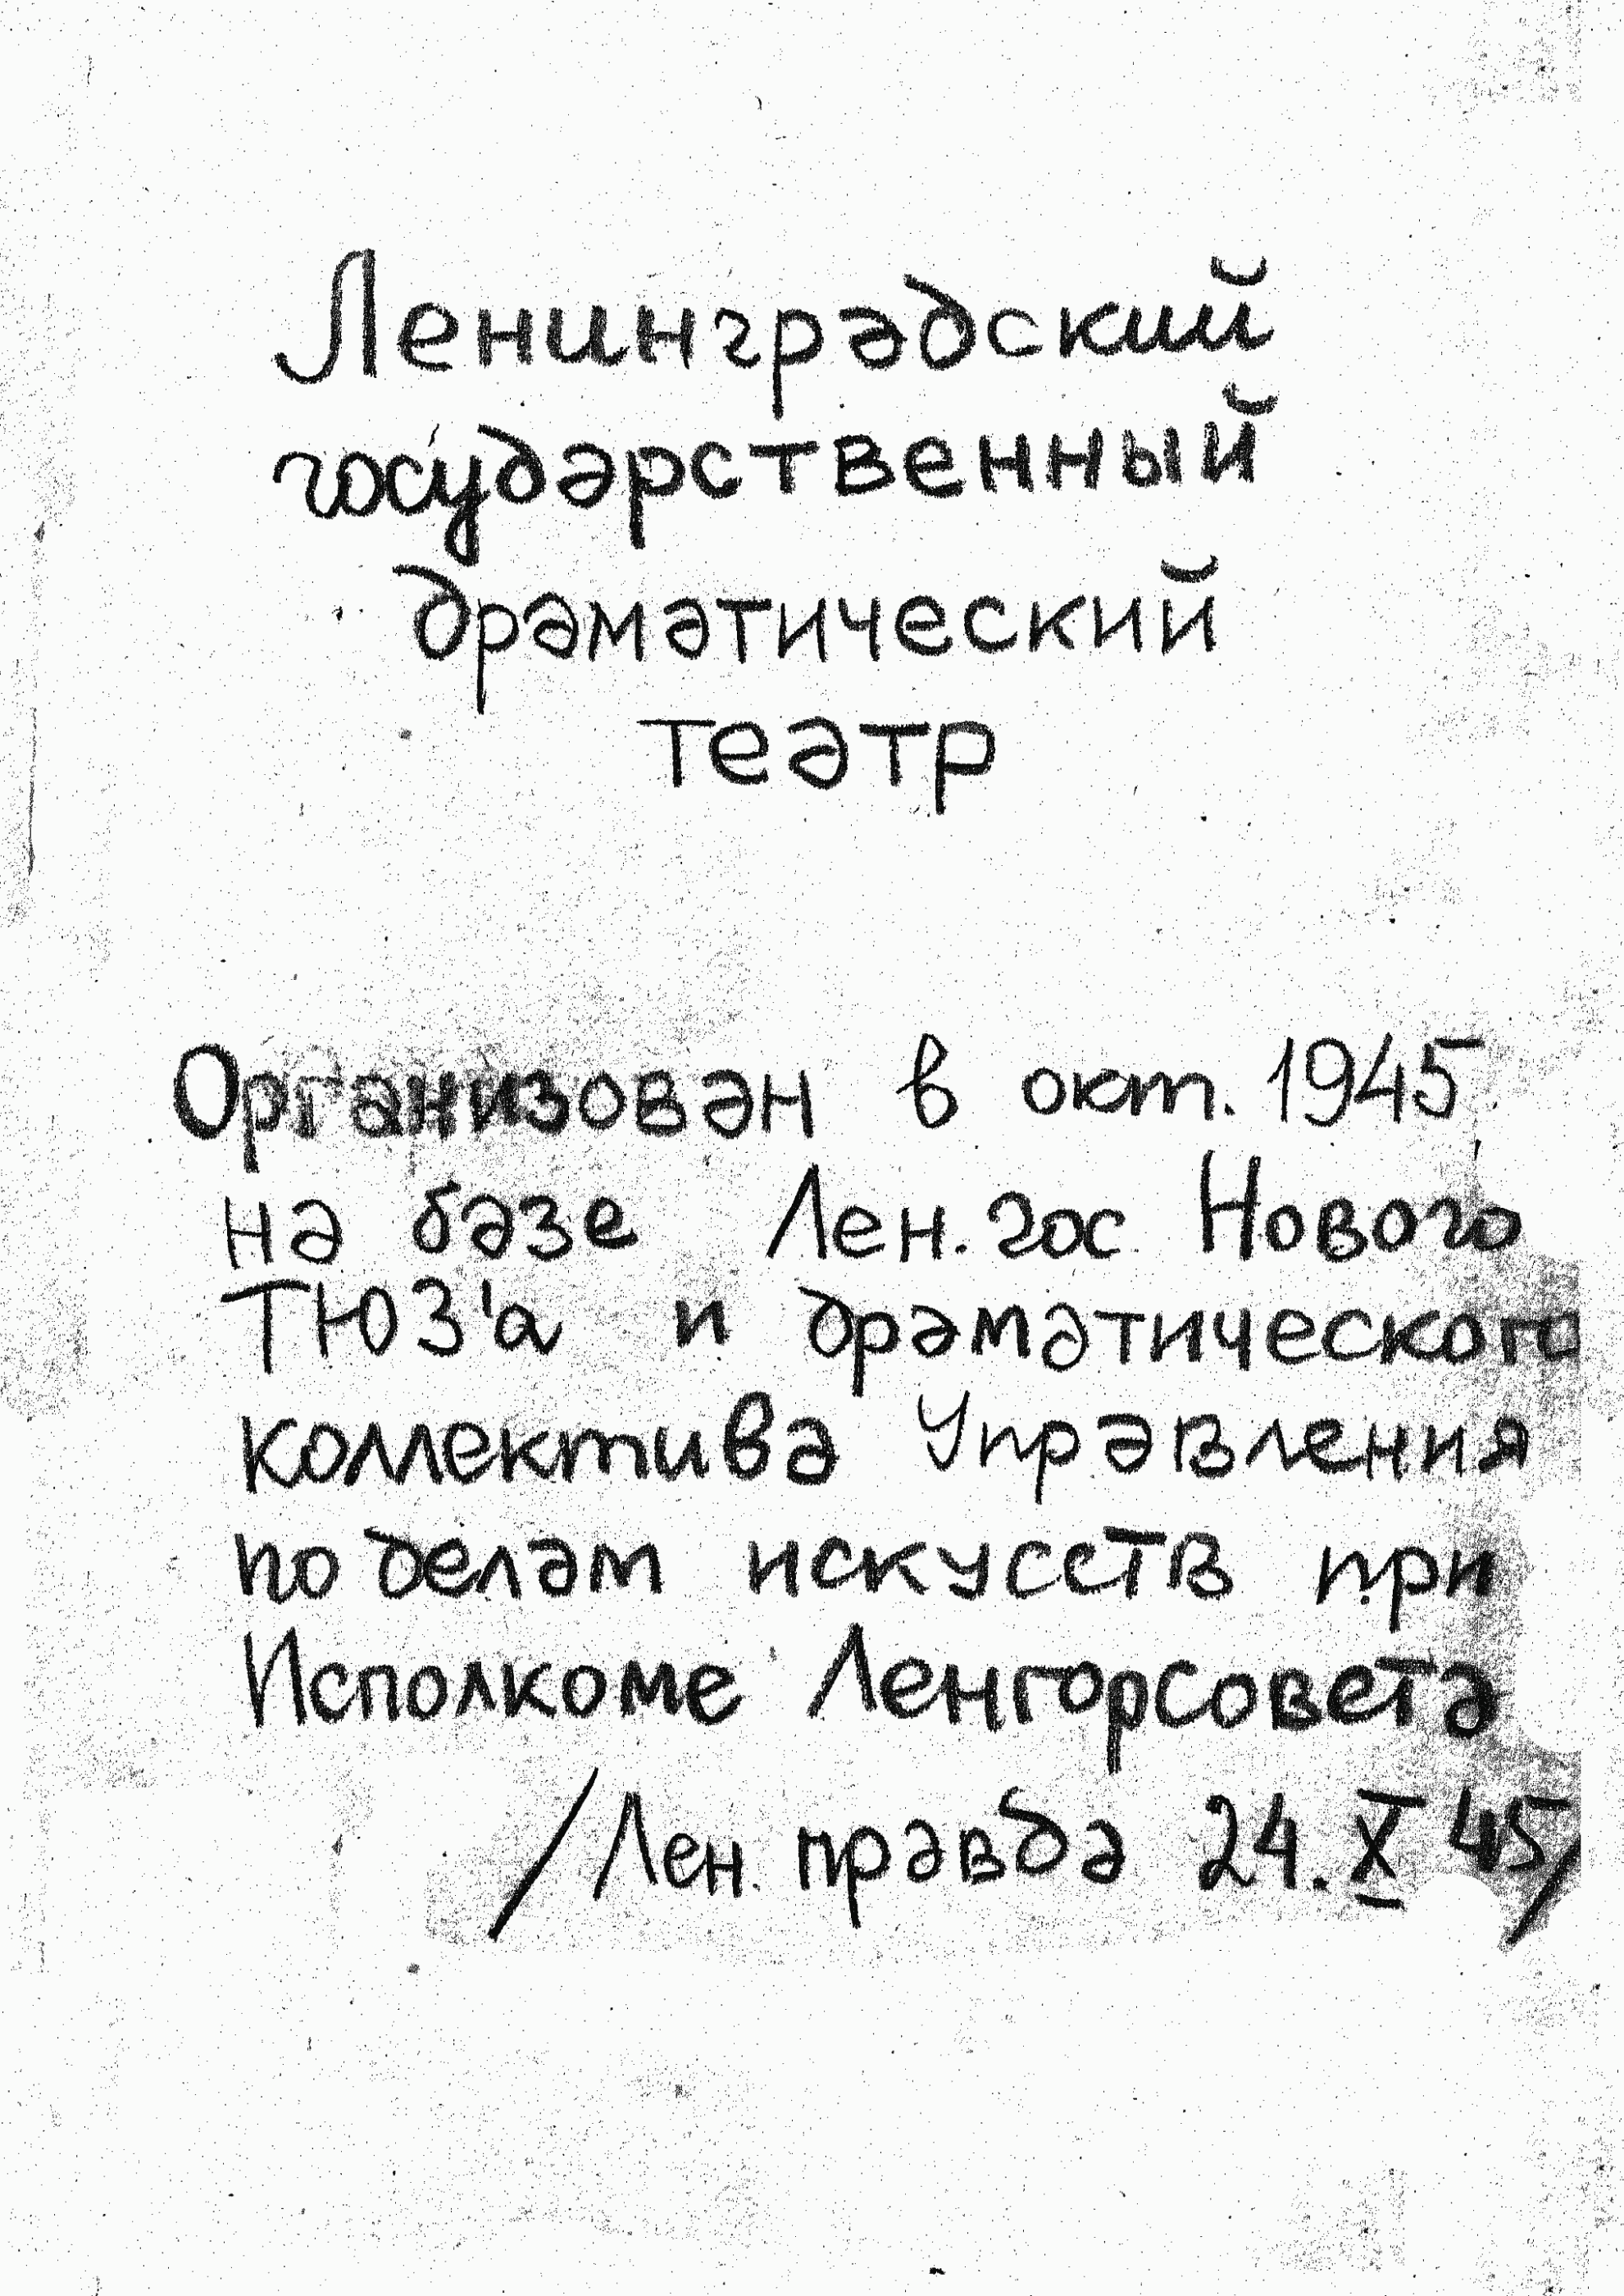 Ленинградский
государственный
драматический
театр
Организован в окт. 1945
на базе Лен. гос Нового
ТЮЗ'а и драматического
коллектива Управления
по делам искусств при
Исполкоме Ленгорсовета
/Лен. правда 24.X 45/